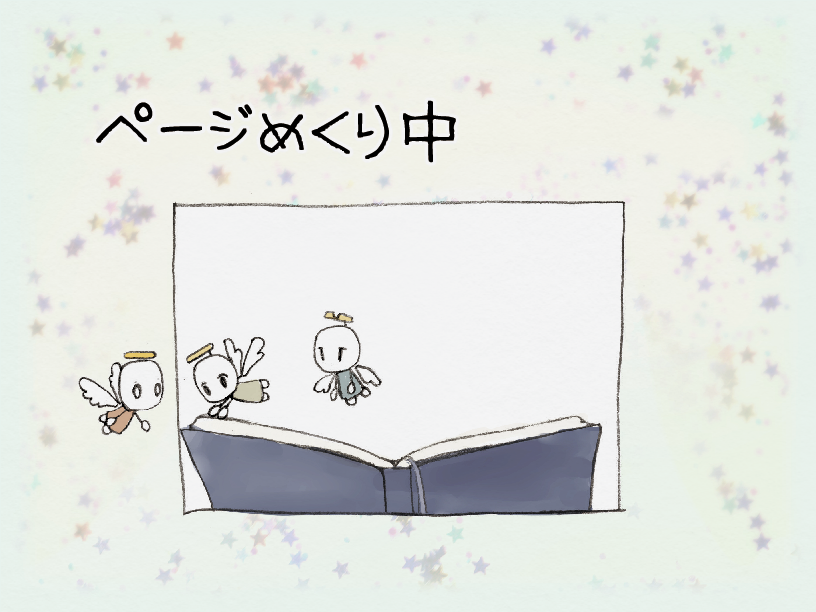 ページめくり中